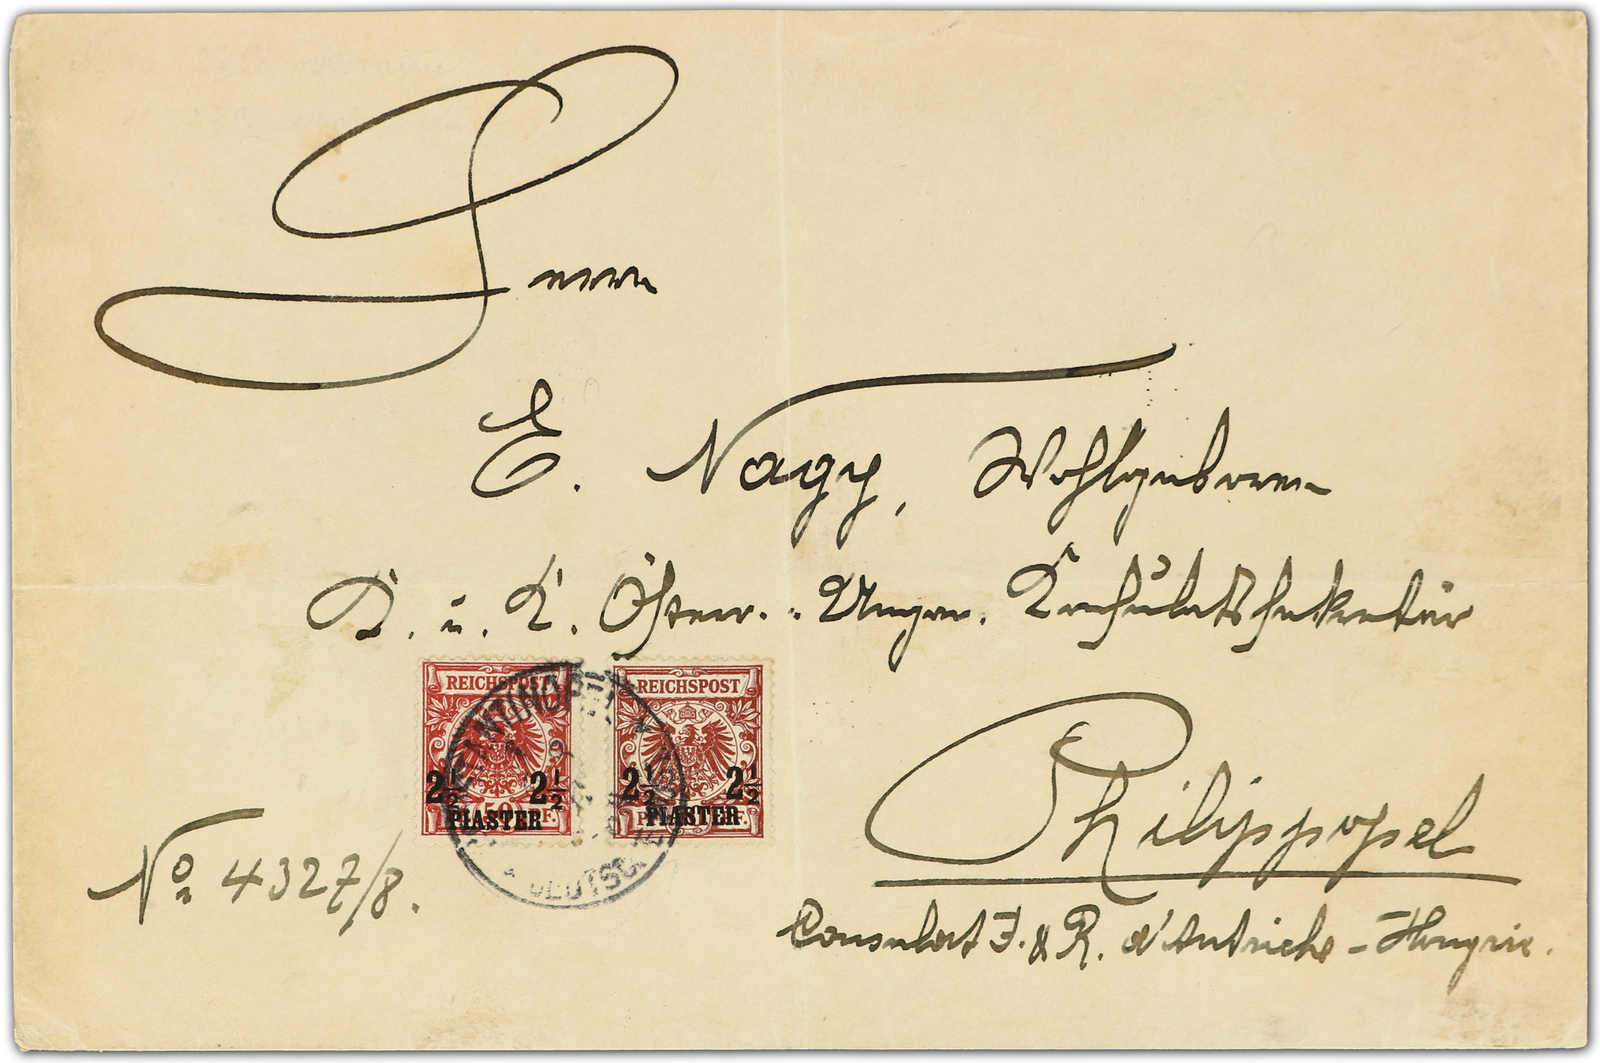 Herrn
E. Nagy, Wohlgeboren
K. u. K. Österr.-Ungar. Konsulatssekretär
REICHSPOST
REICHSPOST
2½ 2½
PIASTER
2½ 2½
PIASTER
Philippopel
No 4327/8.
Consulat I. & R. d'Autriche-Hongrie.